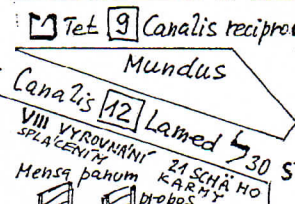 ט Tet 9 Canalis recipro
Mundus
Canalis 12 Lamed ל 30
VIII VYROVNÁNÍ
SPLACENÍM
21 SCHÄ HO
KARMY
Mensa panum